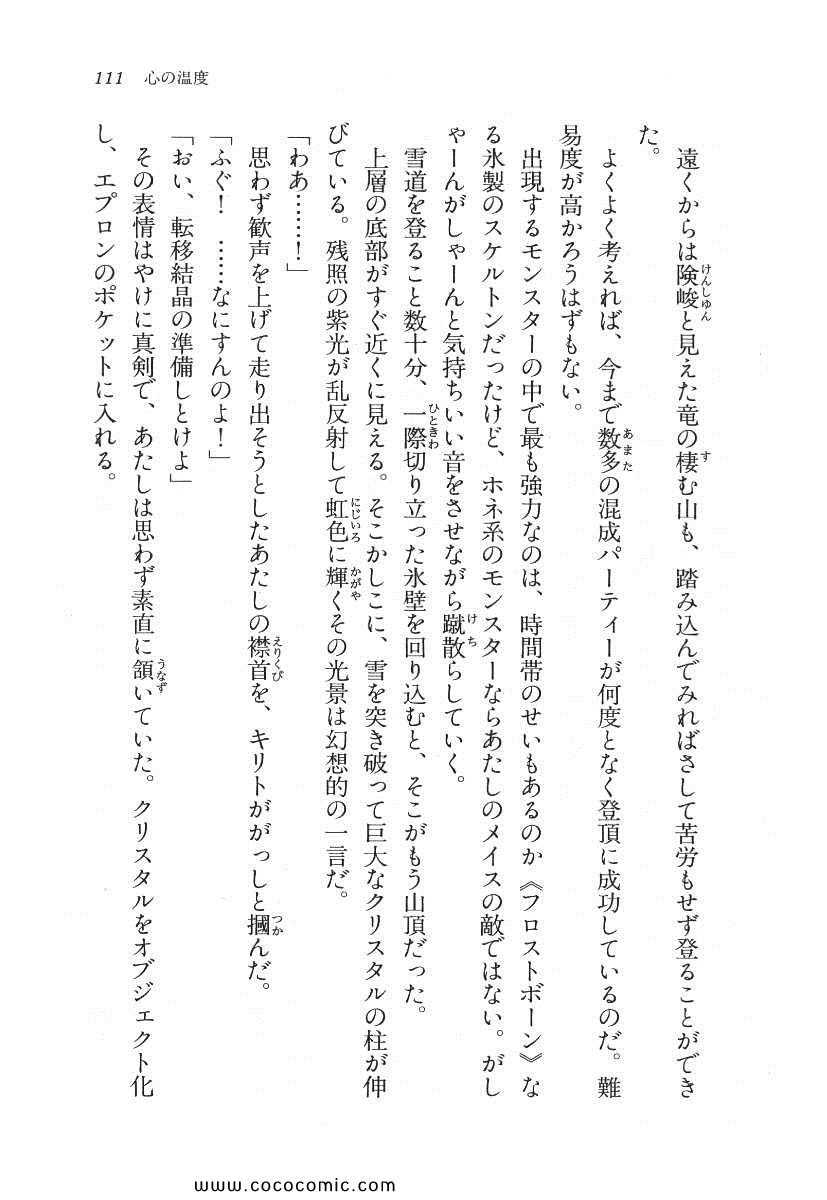 111 心の温度
遠くからは険峻と見えた竜の棲む山も、踏み込んでみればさして苦労もせず登ることができ
た。
よくよく考えれば、今まで数多の混成パーティーが何度となく登頂に成功しているのだ。難
易度が高かろうはずもない。
出現するモンスターの中で最も強力なのは、時間帯のせいもあるのか《フロストボーン》な
る氷製のスケルトンだったけど、ホネ系のモンスターならあたしのメイスの敵ではない。がし
ゃーんがしゃーんと気持ちいい音をさせながら蹴散らしていく。
雪道を登ること数十分、一際切り立った氷壁を回り込むと、そこがもう山頂だった。
上層の底部がすぐ近くに見える。そこかしこに、雪を突き破って巨大なクリスタルの柱が伸
びている。残照の紫光が乱反射して虹色に輝くその光景は幻想的の一言だ。
「わあ……！」
思わず歓声を上げて走り出そうとしたあたしの襟首を、キリトががっしと摑んだ。
「ふぐ！　……なにすんのよ！」
「おい、転移結晶の準備しとけよ」
その表情はやけに真剣で、あたしは思わず素直に頷いていた。クリスタルをオブジェクト化
し、エプロンのポケットに入れる。
www.cococomic.com